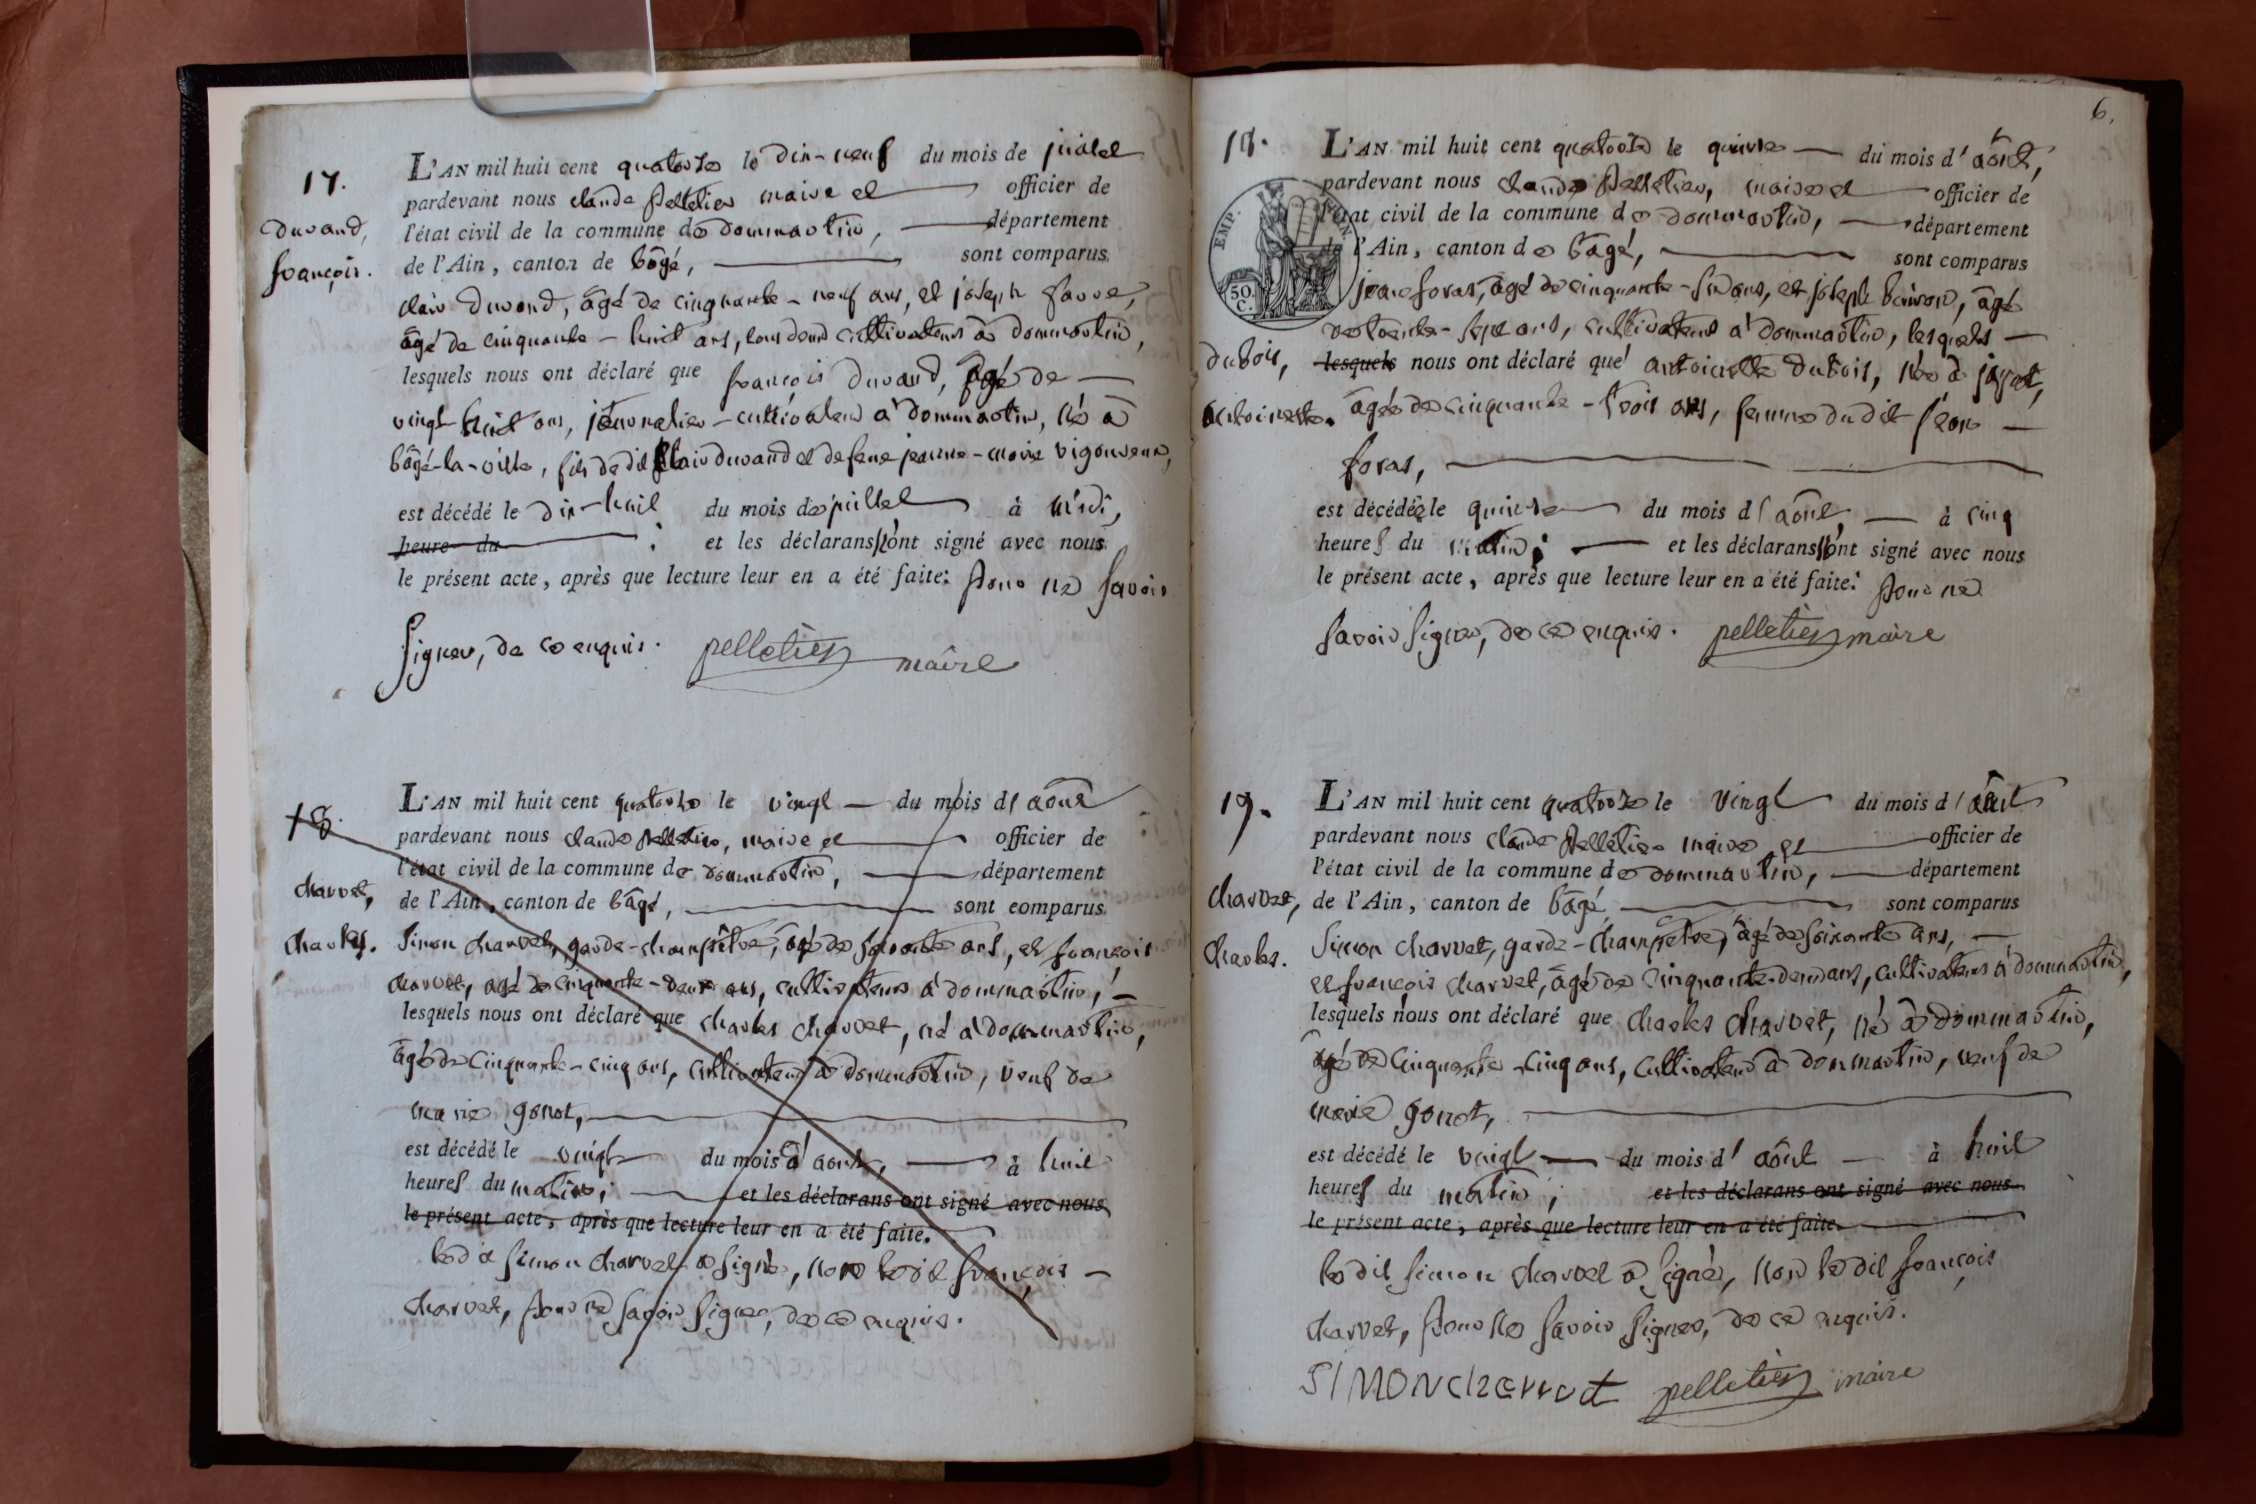 17.
Durand,
françois.
L'AN mil huit cent quatorze le dix-neuf du mois de juillet
pardevant nous claude pelletier maire et officier de
l'état civil de la commune de dommartin, département
de l'Ain, canton de bâgé, sont comparus
clair durand, âgé de cinquante-neuf ans, et joseph favre,
âgé de cinquante-huit ans, tous deux cultivateurs à dommartin,
lesquels nous ont déclaré que françois durand, âgé de
vingt huit ans, journalier-cultivateur à dommartin, né à
bâgé-la-ville, fils dudit clair durand et de feue jeanne-marie
est décédé le dix-huit du mois de juillet à midi,
heure du ; et les déclarans n'ont signé avec nous
le présent acte, après que lecture leur en a été faite: pour ne savoir
signer, de ce enquis. pelletier maire
18.
charvet,
charles.
L'AN mil huit cent quatorze le vingt du mois d'août
pardevant nous claude pelletier, maire et officier de
l'état civil de la commune de dommartin, département
de l'Ain, canton de bâgé, sont comparus
Simon charvet, garde-champêtre, âgé de soixante ans, et françois
charvet, âgé de cinquante-deux ans, cultivateurs à dommartin,
lesquels nous ont déclaré que charles charvet, né à dommartin,
âgé de cinquante-cinq ans, cultivateur à dommartin, veuf de
marie gonot,
est décédé le vingt du mois d'août, à huit
heures du matin; et les déclarans ont signé avec nous
le présent acte, après que lecture leur en a été faite.
ledit simon charvet a signé, non ledit françois
charvet, pour ne savoir signer, de ce enquis.
6.
18.
EMP.
50.
C.
dubois,
antoinette.
L'AN mil huit cent quatorze le quinze du mois d'août,
pardevant nous claude pelletier, maire et officier de
l'état civil de la commune de dommartin, département
de l'Ain, canton de bâgé, sont comparus
foras, âgé de cinquante-six ans, et joseph, âgé
de trente-sept ans, cultivateurs à dommartin, lesquels
lesquels nous ont déclaré que antoinette dubois, née à jayat,
âgée de cinquante-trois ans, femme dudit
foras,
est décédée le quinze du mois d'août, à cinq
heures du matin; et les déclarans n'ont signé avec nous
le présent acte, après que lecture leur en a été faite: pour ne
savoir signer, de ce enquis. pelletier maire
19.
charvet,
charles.
L'AN mil huit cent quatorze le vingt du mois d'août
pardevant nous claude pelletier maire et officier de
l'état civil de la commune de dommartin, département
de l'Ain, canton de bâgé sont comparus
Simon charvet, garde-champêtre, âgé de soixante ans,
et françois charvet, âgé de cinquante-deux ans, cultivateurs à dommartin,
lesquels nous ont déclaré que charles charvet, né à dommartin,
âgé de cinquante-cinq ans, cultivateur à dommartin, veuf de
marie gonot,
est décédé le vingt du mois d'août à huit
heures du matin; et les déclarans ont signé avec nous
le présent acte, après que lecture leur en a été faite.
ledit simon charvet a signé, non ledit françois
charvet, pour ne savoir signer, de ce enquis.
SIMON charvet pelletier maire